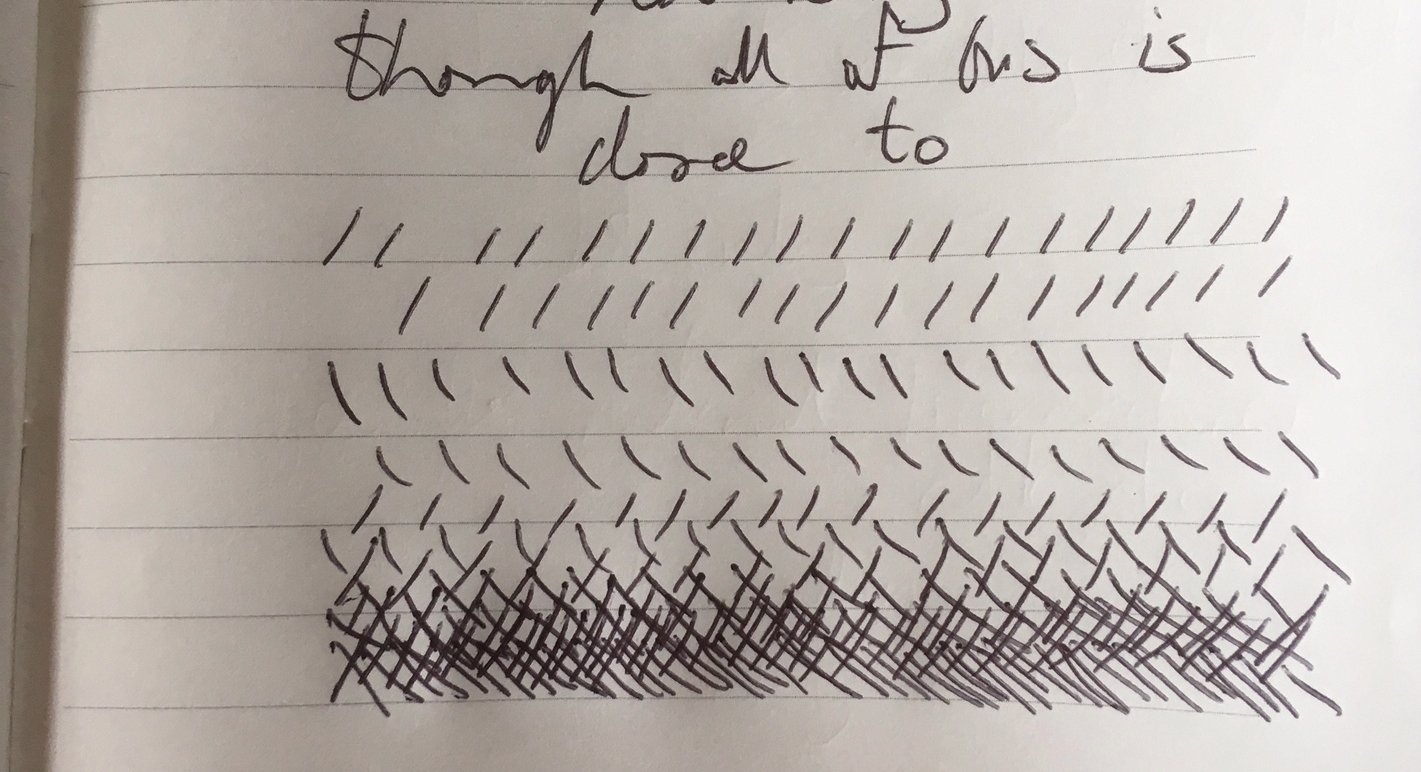 though all of this is
close to